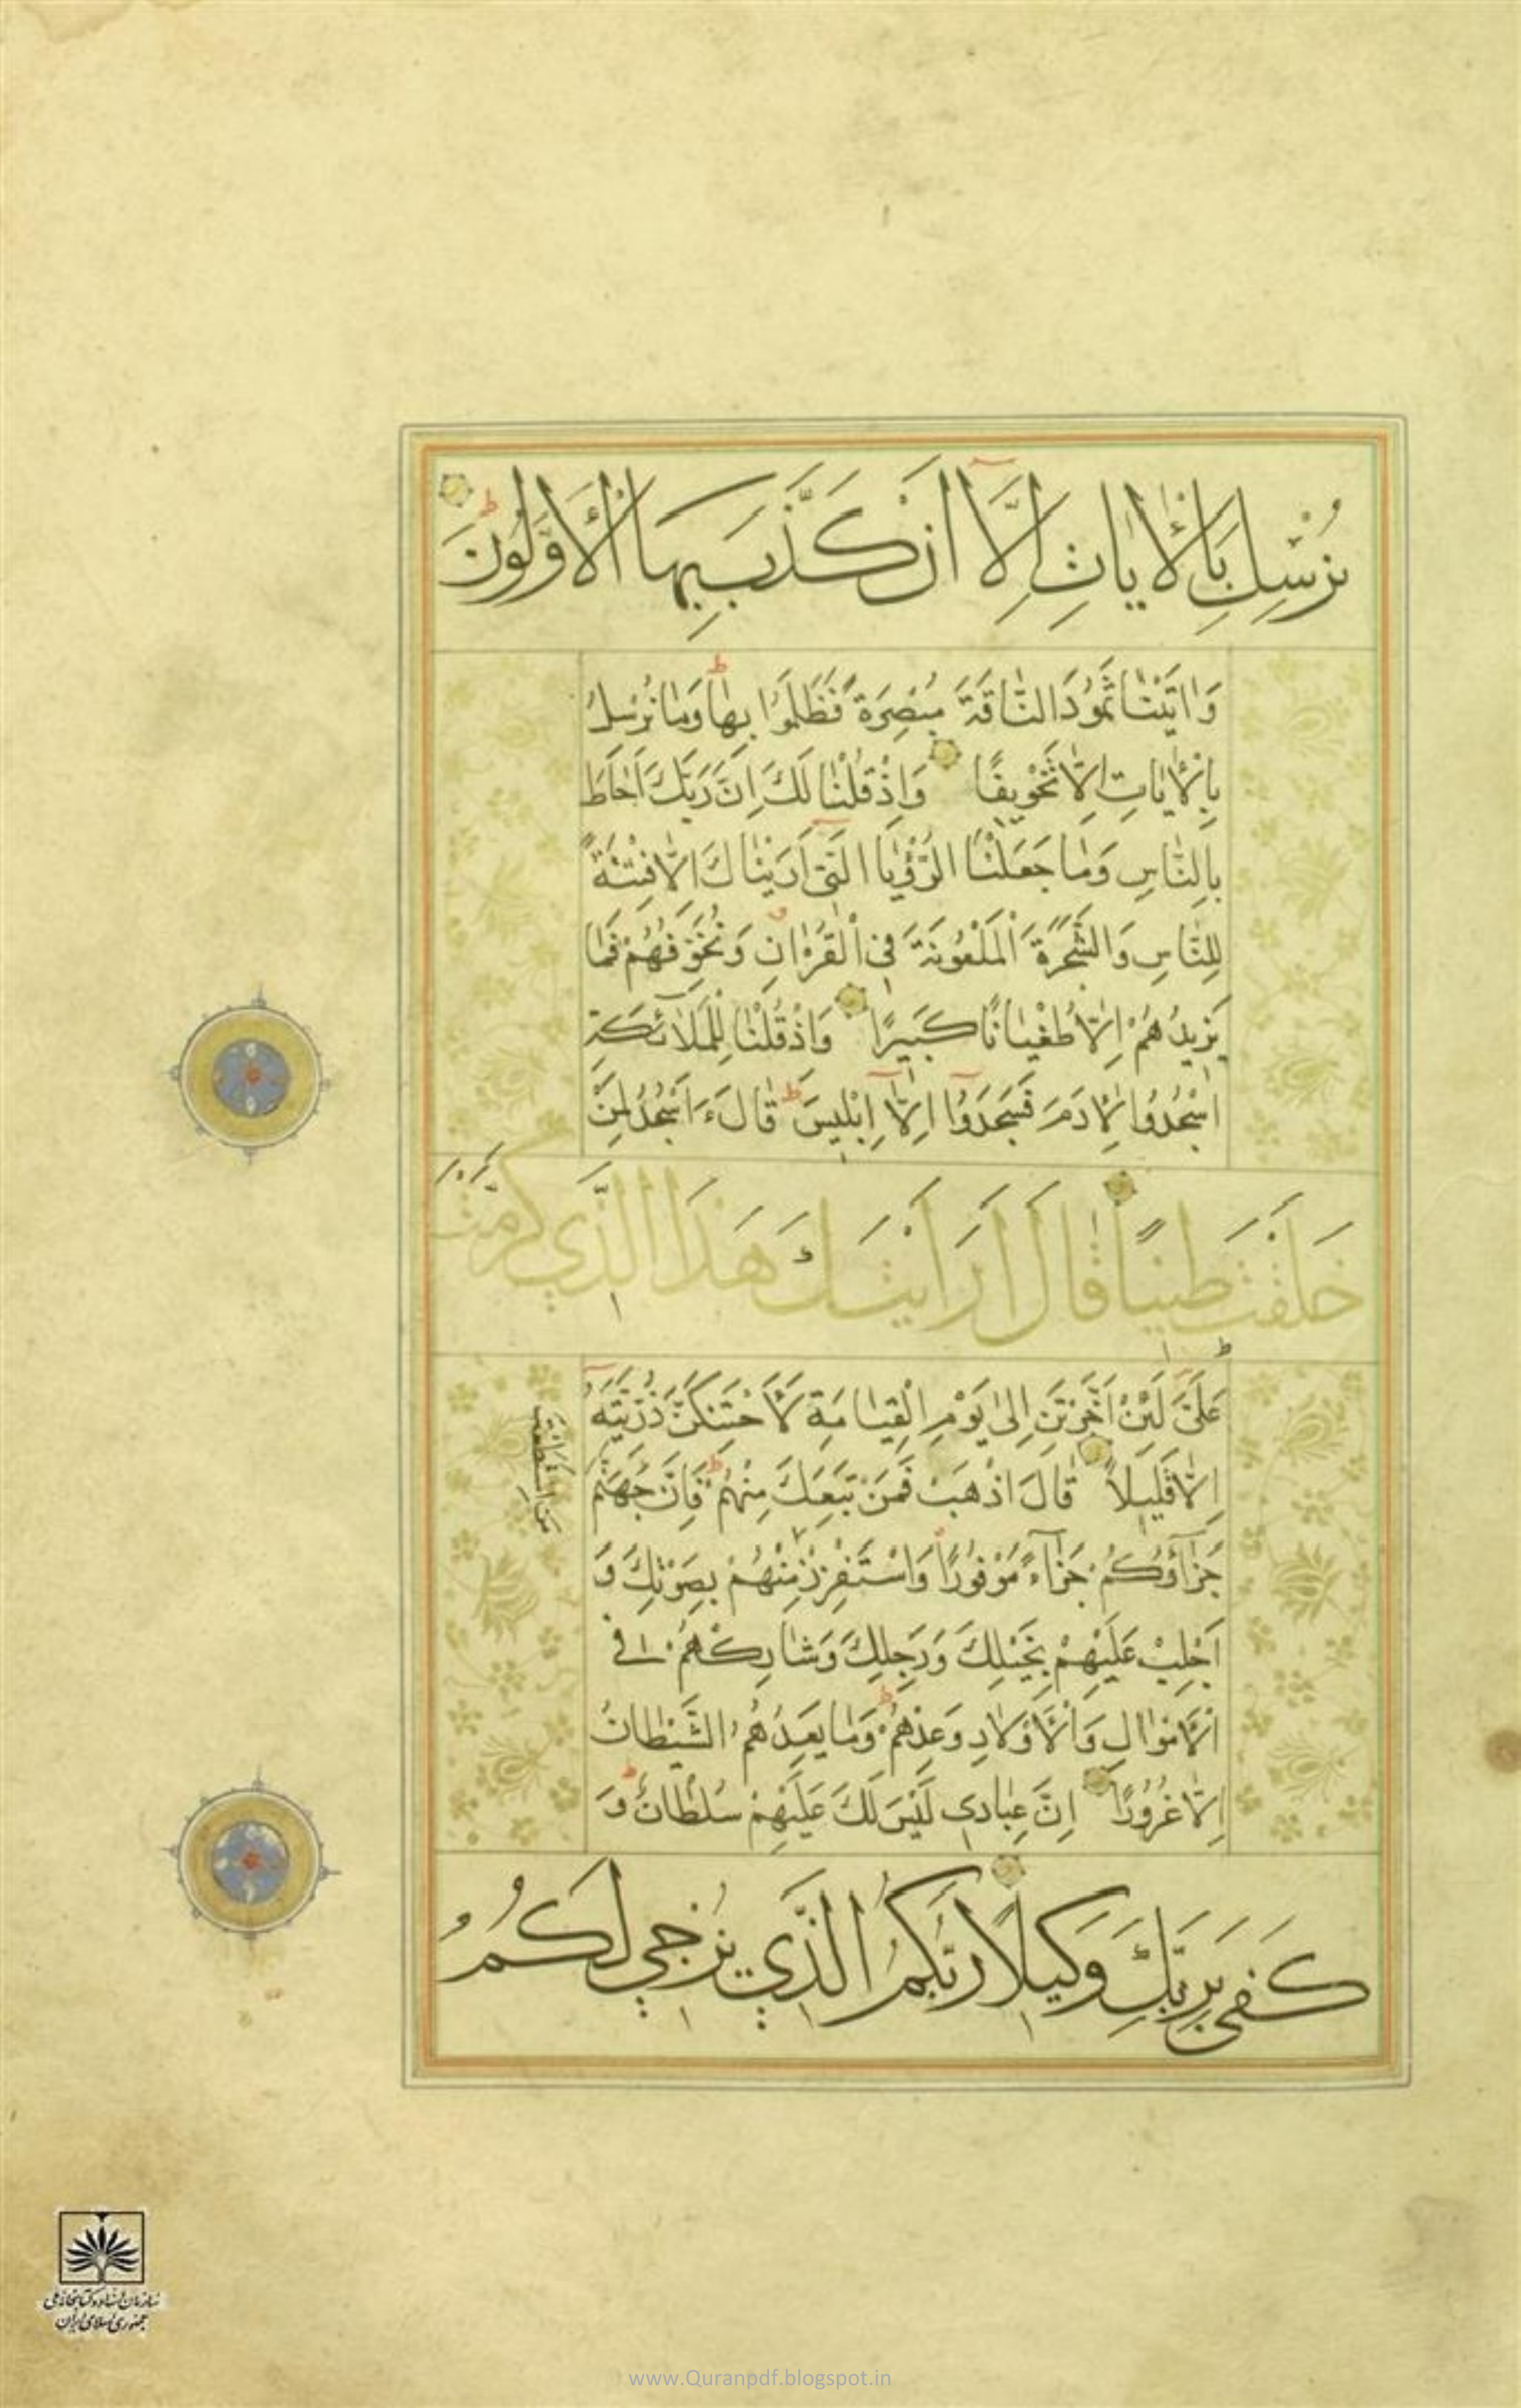 نُرْسِلَ بِالْاٰيَاتِ اِلَّا اَنْ كَذَّبَ بِهَا الْاَوَّلُونَ
وَاٰتَيْنٰا ثَمُودَ النّٰاقَةَ مُبْصِرَةً فَظَلَمُوا بِهٰا وَمٰا نُرْسِلُ
بِالْاٰيٰاتِ اِلّٰا تَخْوِيفًا وَاِذْ قُلْنٰا لَكَ اِنَّ رَبَّكَ اَحٰاطَ
بِالنّٰاسِ وَمٰا جَعَلْنَا الرُّؤْيَا الَّتِي اَرَيْنٰاكَ اِلّٰا فِتْنَةً
لِلنّٰاسِ وَالشَّجَرَةَ الْمَلْعُونَةَ فِي الْقُرْاٰنِ وَنُخَوِّفُهُمْ فَمٰا
يَزِيدُهُمْ اِلّٰا طُغْيٰانًا كَبِيرًا وَاِذْ قُلْنٰا لِلْمَلٰٓائِكَةِ
اسْجُدُوا لِاٰدَمَ فَسَجَدُوٓا اِلّٰٓا اِبْلِيسَ قٰالَ ءَاَسْجُدُ لِمَنْ
خَلَقْتَ طِينًا قَالَ اَرَاَيْتَكَ هَذَا الَّذِي كَرَّمْتَ
عَلَيَّ لَئِنْ اَخَّرْتَنِ اِلىٰ يَوْمِ الْقِيٰامَةِ لَاَحْتَنِكَنَّ ذُرِّيَّتَهُٓ
اِلّٰا قَلِيلاً قٰالَ اذْهَبْ فَمَنْ تَبِعَكَ مِنْهُمْ فَاِنَّ جَهَنَّمَ
جَزٰٓاؤُكُمْ جَزٰٓاءً مَوْفُورًا وَاسْتَفْزِزْ مِنْهُمْ بِصَوْتِكَ وَ
مَنِ اسْتَطَعْتَ
اَجْلِبْ عَلَيْهِمْ بِخَيْلِكَ وَرَجِلِكَ وَشٰارِكْهُمْ فِي
الْاَمْوٰالِ وَالْاَوْلٰادِ وَعِدْهُمْ وَمٰا يَعِدُهُمُ الشَّيْطٰانُ
اِلّٰا غُرُورًا اِنَّ عِبٰادِي لَيْسَ لَكَ عَلَيْهِمْ سُلْطٰانٌ وَ
كَفَى بِرَبِّكَ وَكِيلًا رَبُّكُمُ الَّذِي يُزْجِي لَكُمُ
سازمان اسناد و کتابخانه ملی
جمهوری اسلامی ایران
www.Quranpdf.blogspot.in